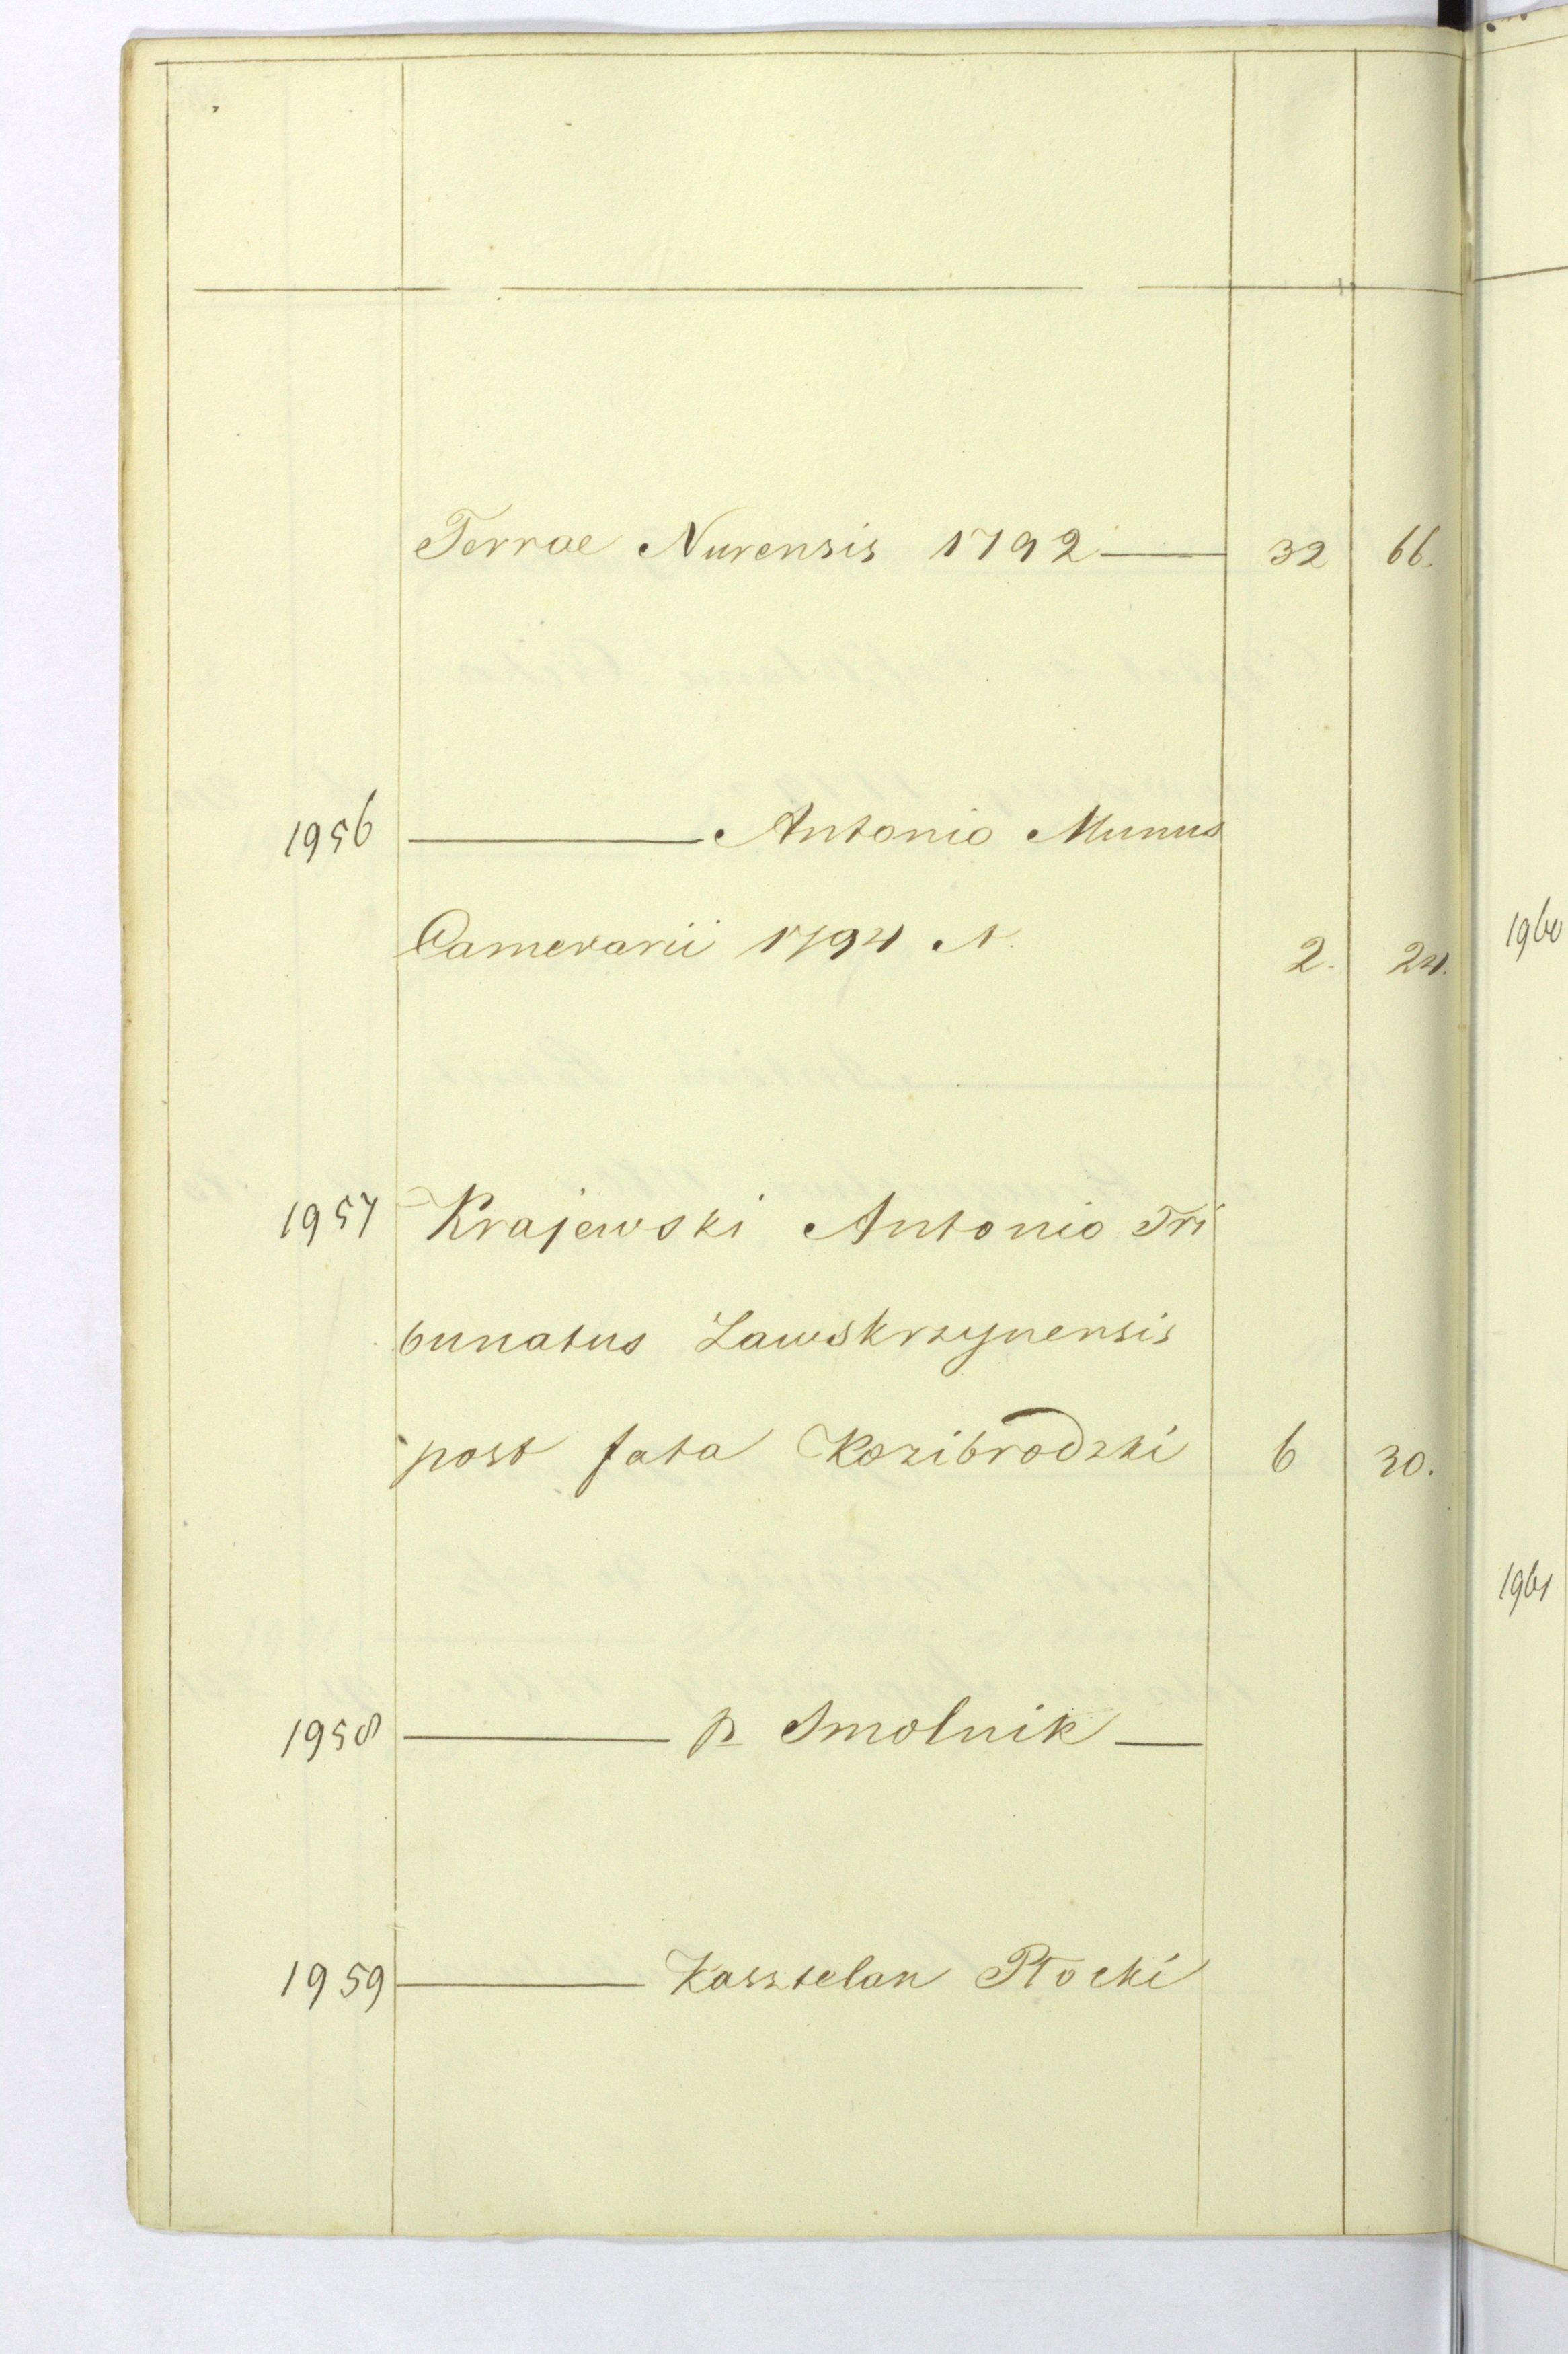 Terrae Nurensis 1792 — 32 66.
1956 — Antonio Munus
Camerarii 1794 N. 2. 24.
1957 Krajewski Antonio Tri
bunatus Zawskrzynensis
post fata Kozibrodzki 6 30.
1958 — p Smolnik —
1959 — Kasztelan Płocki
1960
1961